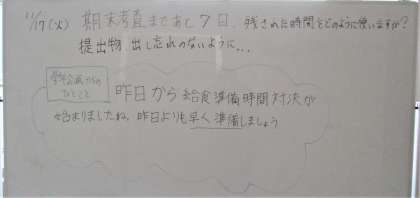 11/17(火) 期末考査まであと7日、残された時間をどのように使いますか?
提出物 出し忘れのないように...
学年公流からの
ひとこと
昨日から給食準備時間対決が
始まりましたね。昨日よりも早く準備しましょう